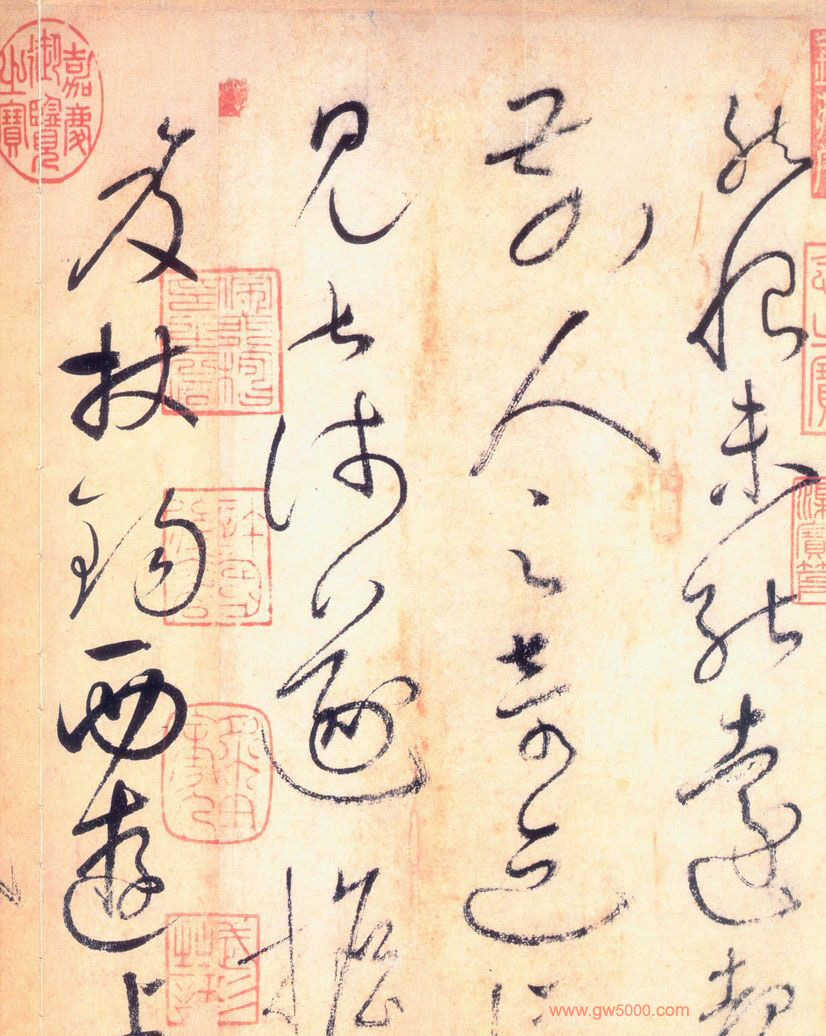 然恨未能遠覩
前人之奇迹所
見甚淺遂擔
笈杖錫西遊上
嘉慶御覽之寶
www.gw5000.com